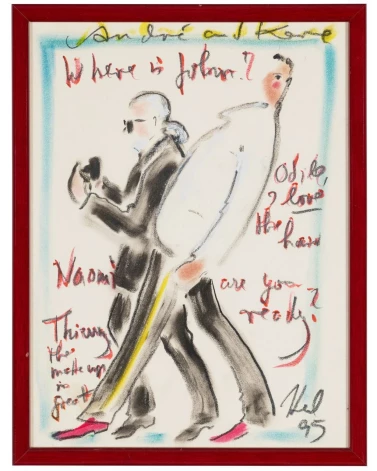 André and Karl
Where is John?
Odile,
I love
the hair
Naomi
are you
ready?
Thierry
the
make up
is
great!
95